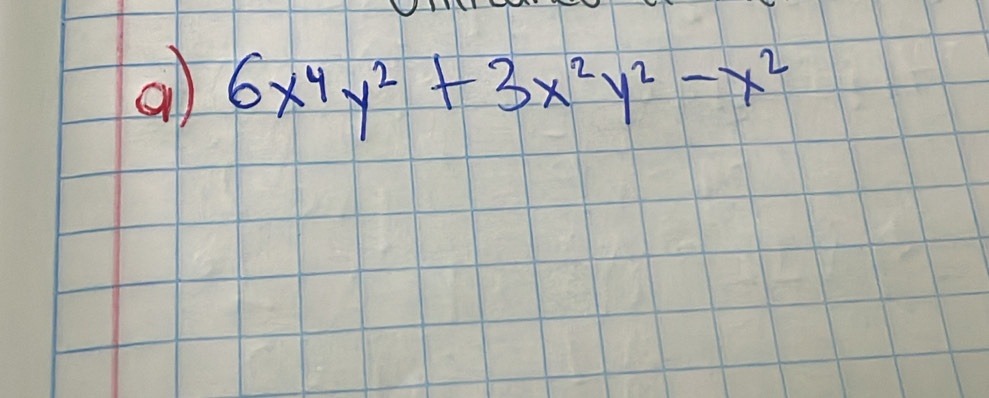 a) 6x⁴y² + 3x²y² - x²